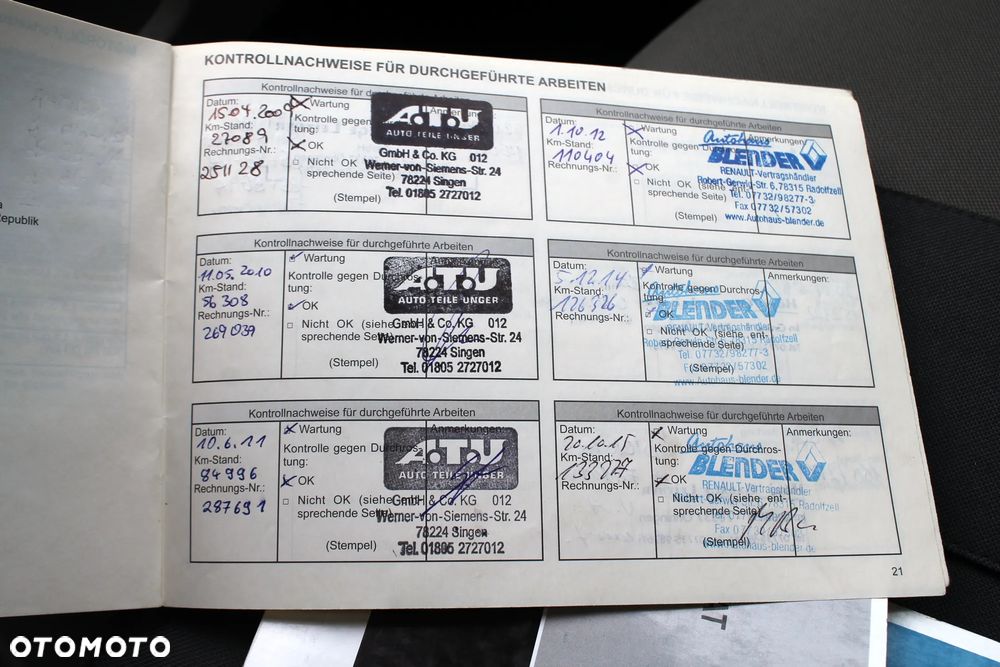 KONTROLLNACHWEISE FÜR DURCHGEFÜHRTE ARBEITEN
Kontrollnachweise für durchgeführte Arbeiten
Datum:
15.04.2009
Km-Stand:
27089
Rechnungs-Nr.:
251128
Wartung
Kontrolle gegen
tung:
OK
Nicht OK
sprechende Seite)
(Stempel)
A.T.U
AUTO TEILE UNGER
GmbH & Co. KG 012
Werner-von-Siemens-Str. 24
78224 Singen
Tel. 01805 2727012
Kontrollnachweise für durchgeführte Arbeiten
Datum:
11.05.2010
Km-Stand:
56308
Rechnungs-Nr.:
269039
Wartung
Kontrolle gegen Durchros
tung:
OK
Nicht OK (siehe
sprechende Seite)
(Stempel)
A.T.U
AUTO TEILE UNGER
GmbH & Co. KG 012
Werner-von-Siemens-Str. 24
78224 Singen
Tel. 01805 2727012
Kontrollnachweise für durchgeführte Arbeiten
Datum:
10.6.11
Km-Stand:
84996
Rechnungs-Nr.:
287691
Wartung
Kontrolle gegen Durchros
tung:
OK
Nicht OK (siehe
sprechende Seite)
(Stempel)
Anmerkungen:
A.T.U
AUTO TEILE UNGER
GmbH & Co. KG 012
Werner-von-Siemens-Str. 24
78224 Singen
Tel. 01805 2727012
Kontrollnachweise für durchgeführte Arbeiten
Datum:
1.10.12
Km-Stand:
110404
Rechnungs-Nr.:
Wartung
Kontrolle gegen
tung:
OK
Nicht OK (siehe ent-
sprechende Seite)
(Stempel)
Anmerkungen:
Autohaus
BLENDER
RENAULT-Vertragshändler
Robert-Gerwig-Str. 6, 78315 Radolfzell
Tel. 07732/98277-3
Fax 07732/57302
www.Autohaus-blender.de
Kontrollnachweise für durchgeführte Arbeiten
Datum:
5.12.14
Km-Stand:
126326
Rechnungs-Nr.:
Wartung
Kontrolle gegen Durchros-
tung:
OK
Nicht OK (siehe ent-
sprechende Seite)
(Stempel)
Anmerkungen:
Autohaus
BLENDER
RENAULT-Vertragshändler
Radolfzell
Tel. 07732/98277-3
Fax 07732/57302
www.Autohaus-blender.de
Kontrollnachweise für durchgeführte Arbeiten
Datum:
20.10.15
Km-Stand:
Rechnungs-Nr.:
Wartung
Kontrolle gegen Durchros-
tung:
OK
Nicht OK (siehe ent-
sprechende Seite)
(Stempel)
Anmerkungen:
Autohaus
BLENDER
RENAULT-Vertragshändler
Radolfzell
21
OTOMOTO